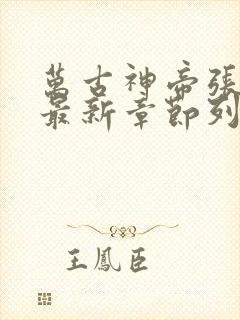 萬古神帝張
最新章節列
王鳳臣